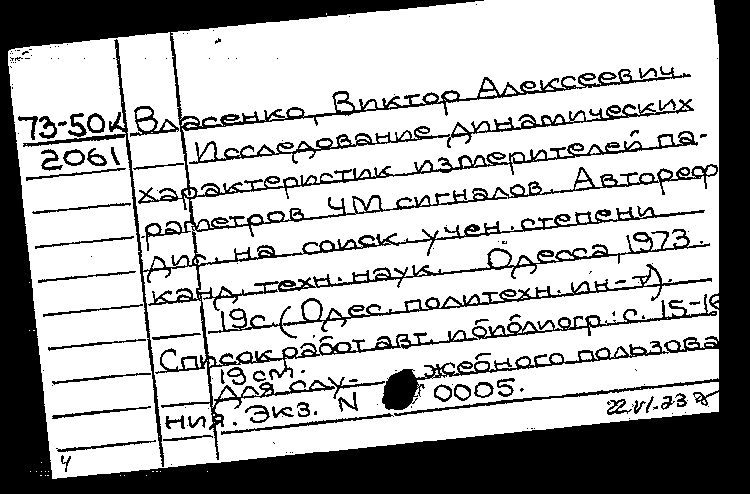 73-50к Власенко, Виктор Алексеевич
2061 Исследование динамических
характеристик измерителей па-
раметров ЧМ сигналов. Автореф
дис. на соиск. учен. степени
канд. техн. наук. Одесса, 1973.
19с. (Одес. политехн. ин-т).
Список работ авт. и библиогр.: с. 15-18
19 см.
Для слу- жебного пользова
ния. Экз. N 0005.
22.VI.73
4